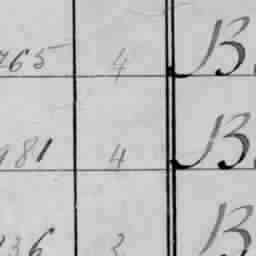 765 4 B
981 4 B
736 3 B